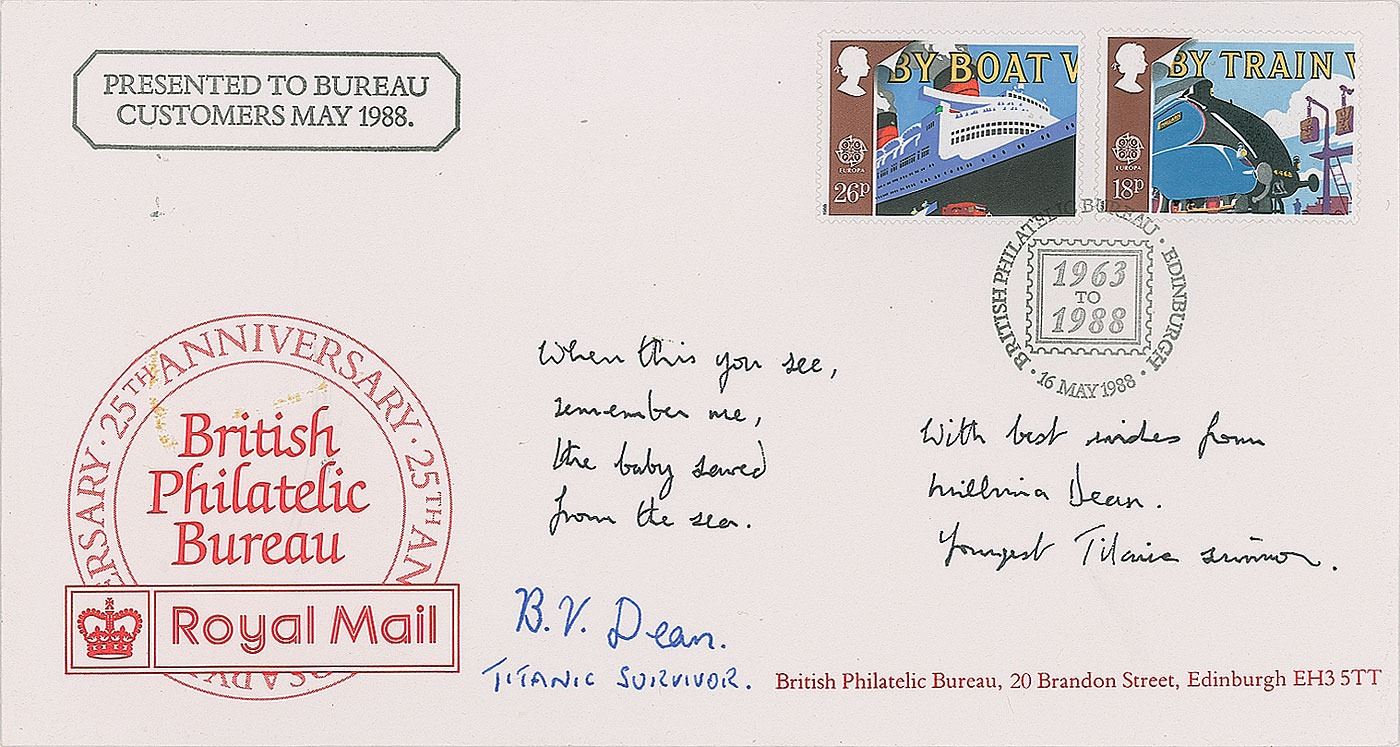 PRESENTED TO BUREAU
CUSTOMERS MAY 1988.
BY BOAT V
EUROPA
26p
BY TRAIN V
4468
EUROPA
18p
BRITISH PHILATELIC BUREAU · EDINBURGH ·
1963
TO
1988
· 16 MAY 1988 ·
ERSARY · 25TH ANNIVERSARY · 25TH AN
British
Philatelic
Bureau
Royal Mail
RSARY
When this you see,
remember me,
the baby saved
from the sea.
With best wishes from
Millvina Dean.
Youngest Titanic survivor.
B.V. Dean.
TITANIC SURVIVOR.
British Philatelic Bureau, 20 Brandon Street, Edinburgh EH3 5TT